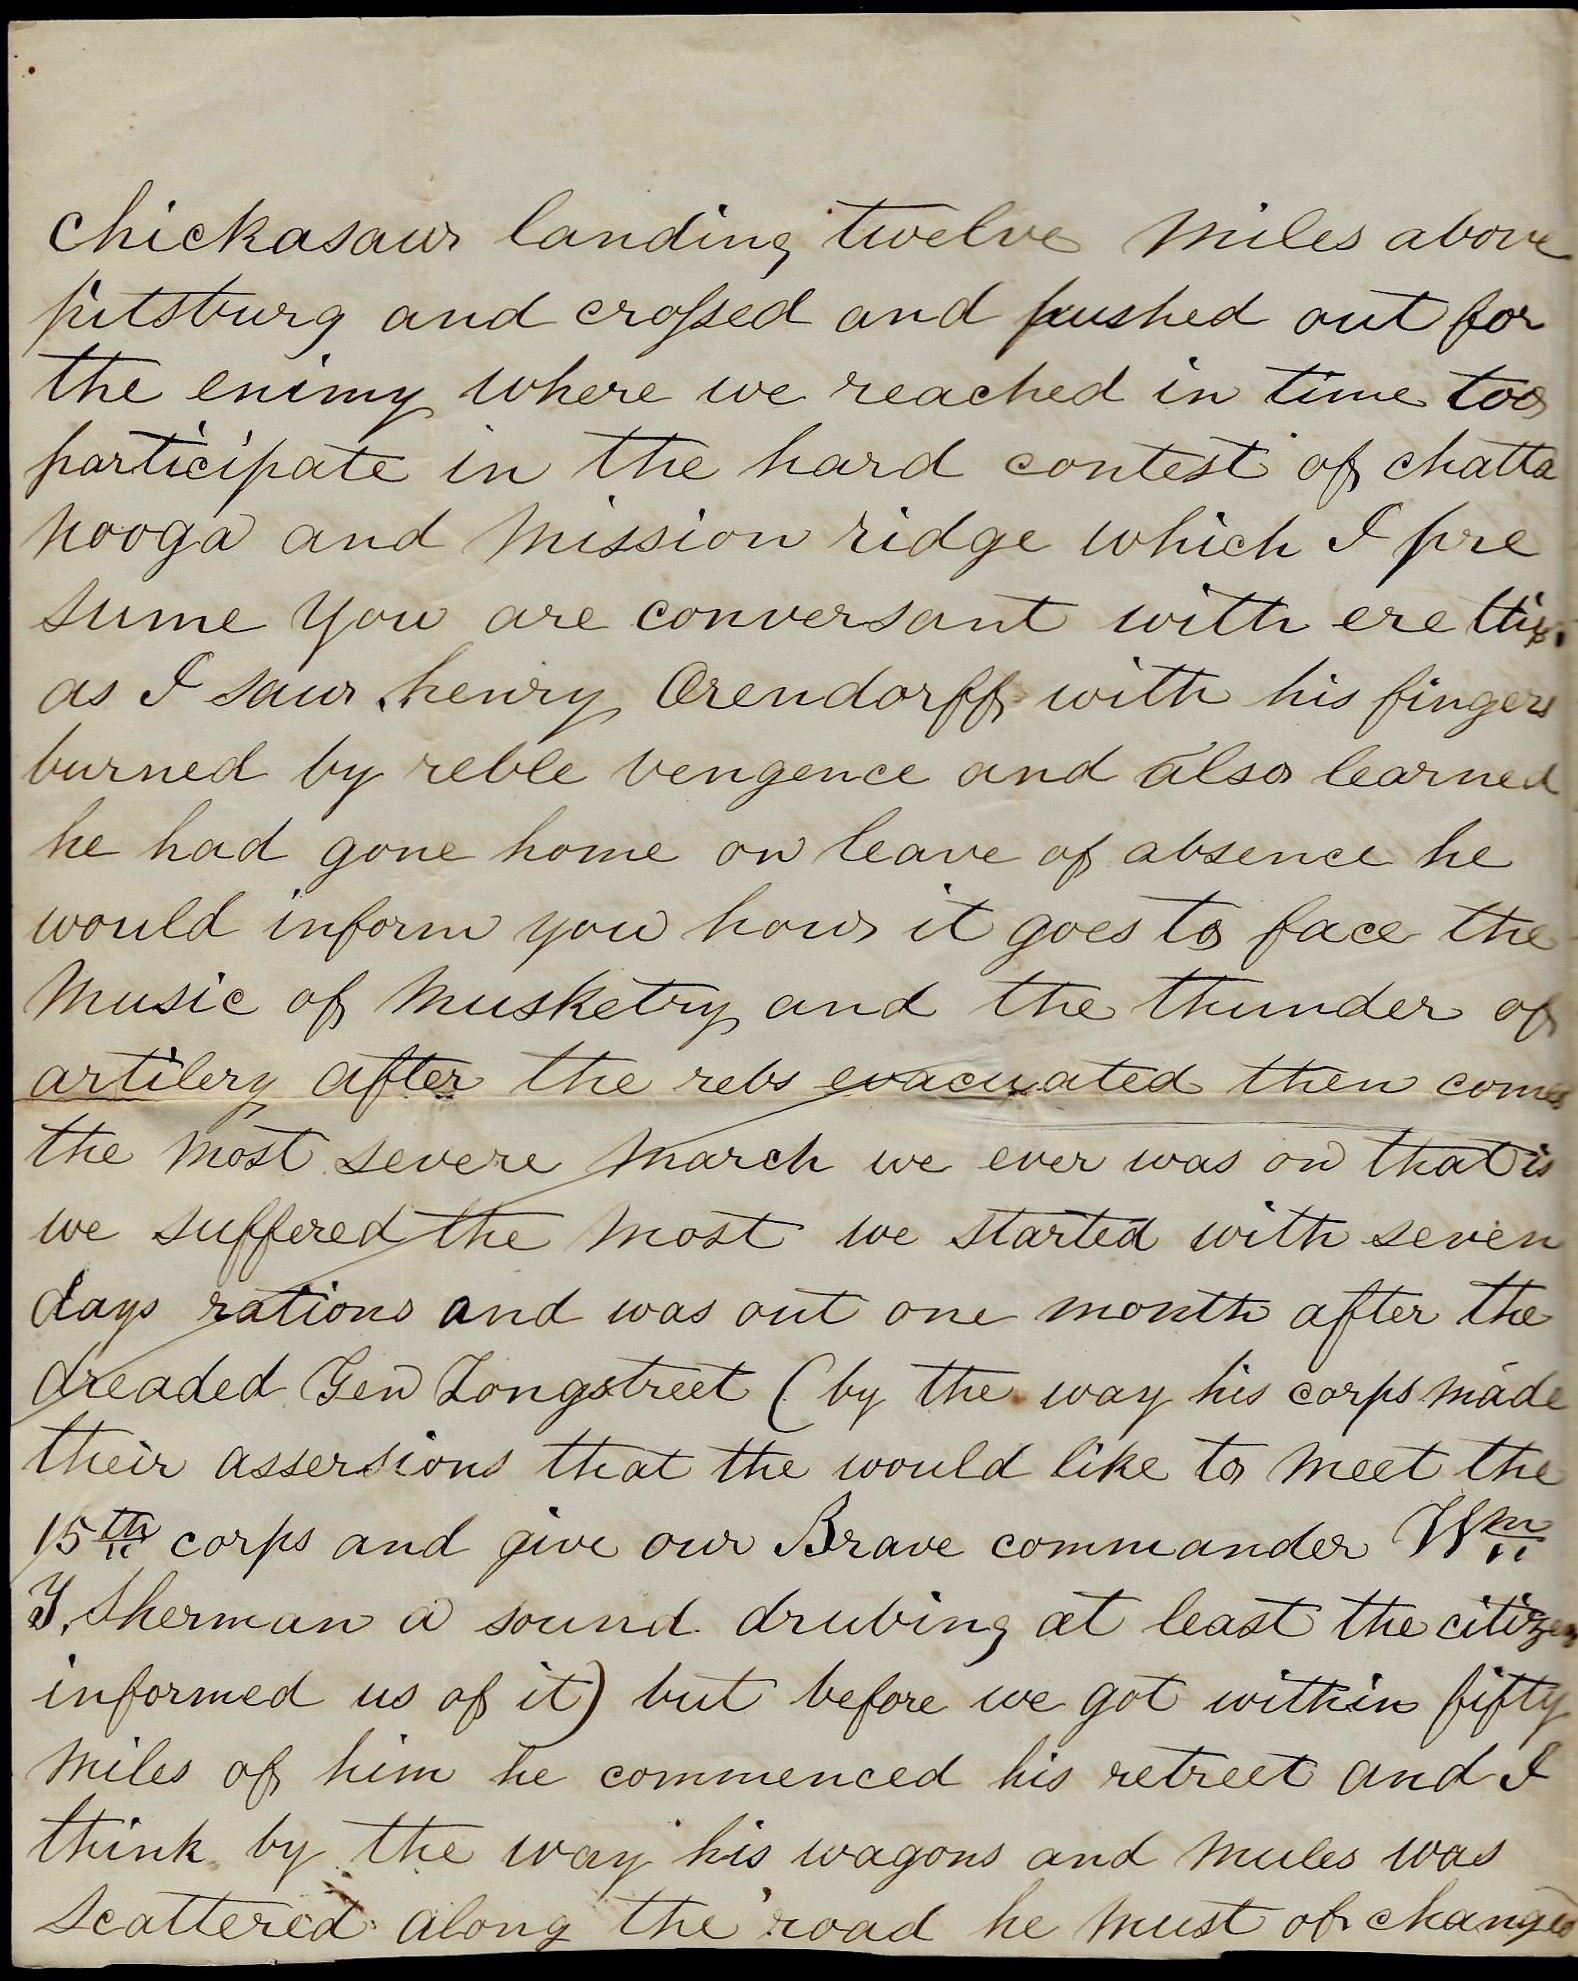 chickasaw landing twelve miles above
pitsburg and crossed and pushed out for
the enimy where we reached in time too
participate in the hard contest of chatta
nooga and Mission ridge which I pre
sume you are conversant with ere this
as I saw henry Orendorff with his fingers
burned by reble vengence and also learned
he had gone home on leave of absence he
would inform you how it goes to face the
Music of Musketry and the thunder of
artilery after the rebs evacuated then comes
the most severe March we ever was on that is
we suffered the most we started with seven
days rations and was out one month after the
dreaded Gen Longstreet (by the way his corps made
their assersions that the would like to meet the
15th corps and give our Brave commander Wm
T. Sherman a sound drubing at least the citizens
informed us of it) but before we got within fifty
Miles of him he commenced his retreet and I
think by the way his wagons and Mules was
scattered along the road he must of changed